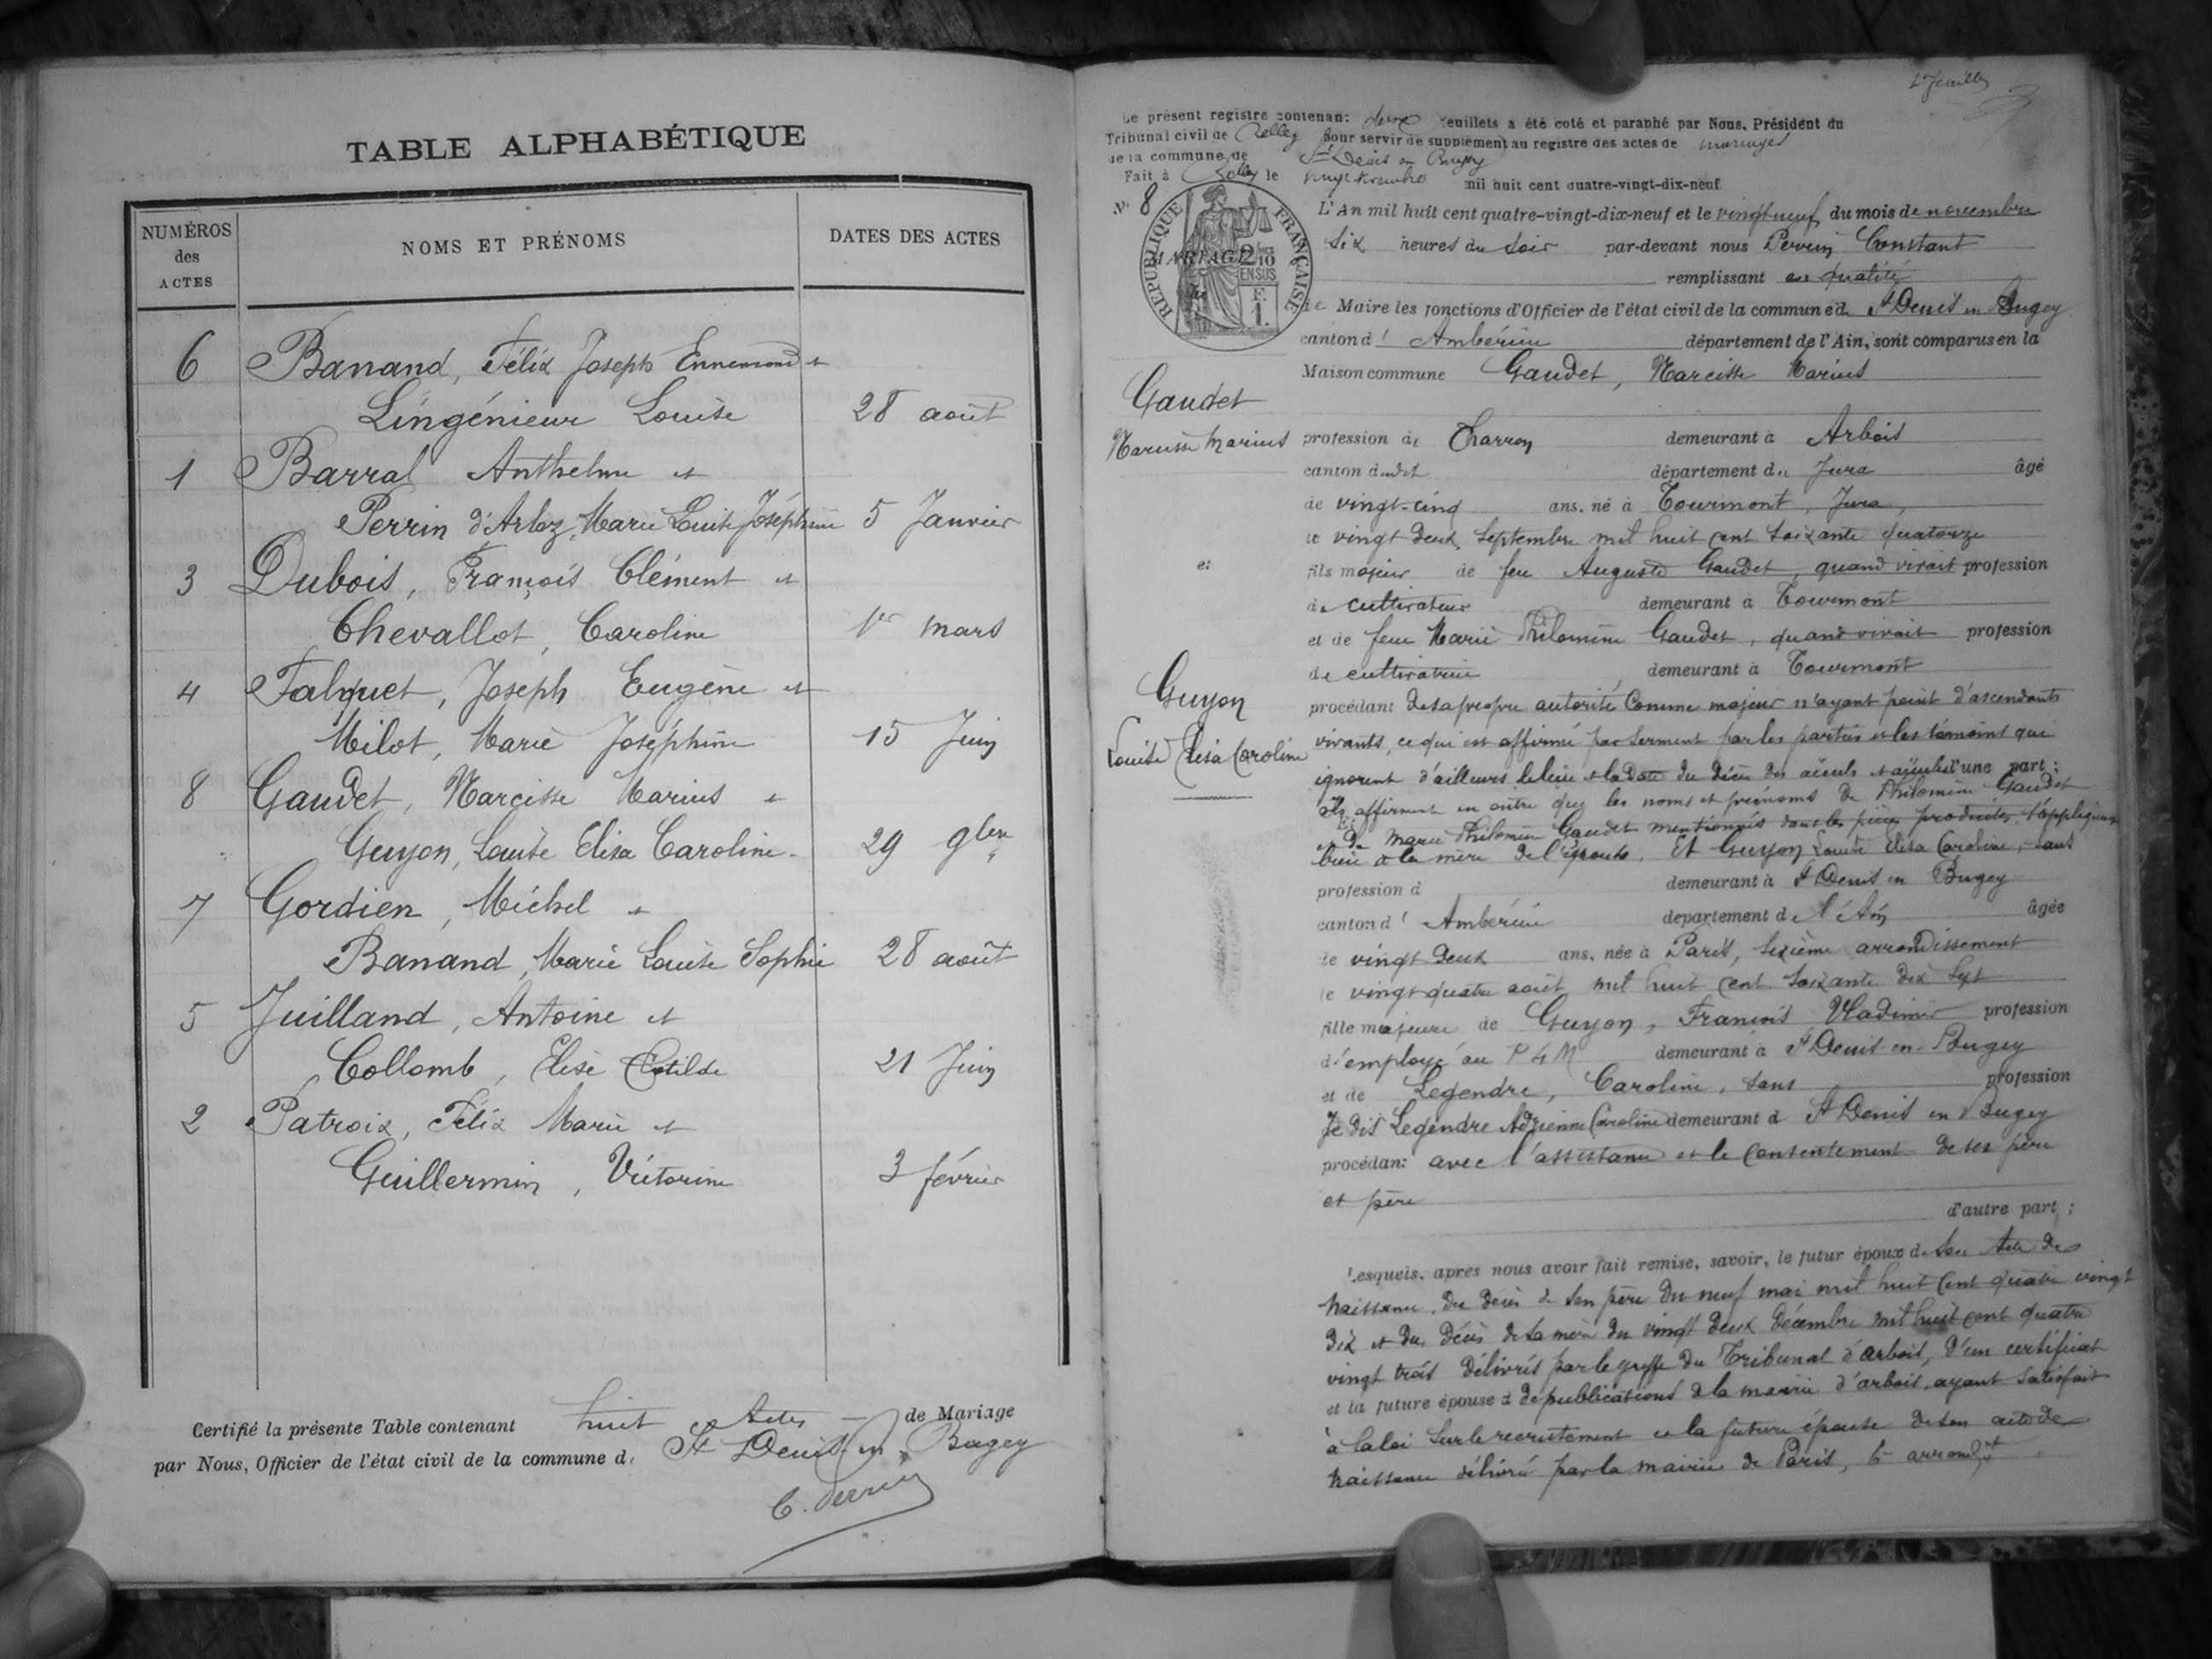 TABLE ALPHABÉTIQUE
NUMÉROS des ACTES
NOMS ET PRÉNOMS
DATES DES ACTES
6 Banand, Félix Joseph Ennemond et
Lingénieur Louise 28 août
1 Barral Anthelme et
Perrin d'Arloz, Marie Louise Joséphine 5 Janvier
3 Dubois, François Clément et
Chevallot, Caroline 1er mars
4 Falquet, Joseph Eugène et
Milot, Marie Joséphine 15 Juin
8 Gaudet, Narcisse Marius et
Guyon, Louise Elisa Caroline 29 9bre
7 Gordien, Michel et
Banand, Marie Louise Sophie 28 août
5 Juilland, Antoine et
Collomb, Elise Clotilde 21 Juin
2 Patroix, Félix Marie et
Guillermin, Victorine 3 février
Certifié la présente Table contenant huit Actes de Mariage
par Nous, Officier de l'état civil de la commune de St Denis en Bugey
C. Perrin
2e feuillet
Le présent registre contenant deux feuillets a été coté et paraphé par Nous, Président du
Tribunal civil de Belley pour servir de supplément au registre des actes de mariages
de la commune de St Denis en Bugey
Fait à Belley le mil huit cent quatre-vingt-dix-neuf
N° 8
RÉPUBLIQUE FRANÇAISE
MARIAGE
2/10 EN SUS
F. 1.
L'An mil huit cent quatre-vingt-dix-neuf et le vingt neuf du mois de novembre
six heures du soir par-devant nous Perrin Constant
remplissant en qualité
de Maire les fonctions d'Officier de l'état civil de la commune de St Denis en Bugey
canton d' Ambérieu département de l'Ain, sont comparus en la
Maison commune Gaudet, Narcisse Marius
Gaudet
Narcisse Marius
profession de Charron demeurant à Arbois
canton dudit département du Jura âgé
de vingt-cinq ans, né à Tourmont, Jura,
le vingt deux Septembre mil huit cent soixante quatorze
et
fils majeur de feu Auguste Gaudet, quand vivait profession
de cultivateur demeurant à Tourmont
et de feue Marie Philomène Gaudet, quand vivait profession
de cultivatrice demeurant à Tourmont
Guyon
Louise Elisa Caroline
procédant de sa propre autorité comme majeur n'ayant point d'ascendants
vivants, ce qui est affirmé par serment par les parties et les témoins qui
ignorent d'ailleurs le lieu et la date du décès des aïeuls et aïeules d'une part;
Ils affirment en outre que les noms et prénoms de Philomène Gaudet
et de Marie Philomène Gaudet mentionnés dans les pièces produites, s'appliquent
bien à la mère de l'époux. Et Guyon Louise Elisa Caroline, sans
profession d demeurant à St Denis en Bugey
canton d' Ambérieu département de l'Ain âgée
de vingt deux ans, née à Paris, sixième arrondissement
le vingt-quatre août mil huit cent soixante dix sept
fille majeure de Guyon, François Vladimir profession
d'employé au P L M demeurant à St Denis-en-Bugey
et de Legendre, Caroline, sans profession
Je dis Legendre Adrienne Caroline demeurant à St Denis en Bugey
procédant avec l'assistance et le consentement de ses père
et père
d'autre part;
Lesquels, après nous avoir fait remise, savoir, le futur époux de son Acte de
naissance, du décès de son père du neuf mai mil huit cent quatre vingt
dix et du décès de sa mère du vingt deux décembre mil huit cent quatre
vingt trois délivrés par le greffe du Tribunal d'Arbois, d'un certificat
et la future épouse de publications de la mairie d'arbois, ayant satisfait
à la loi sur le recrutement et la future épouse de son acte de
naissance délivré par la mairie de Paris, 6e arrondt